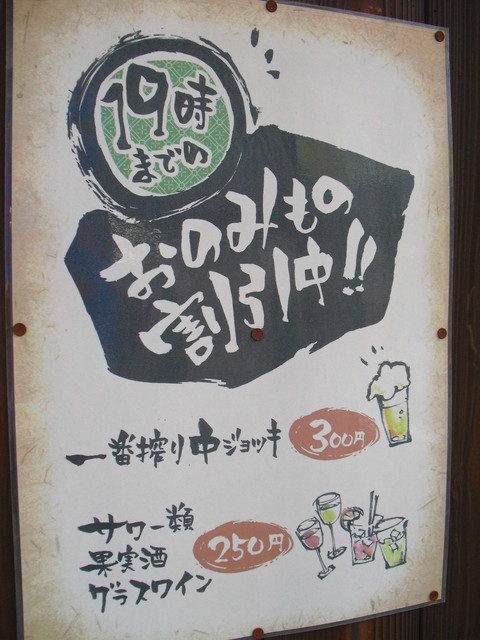 19時
までの
おのみもの
割引中!!
一番搾り中ジョッキ 300円
サワー類
果実酒 250円
グラスワイン